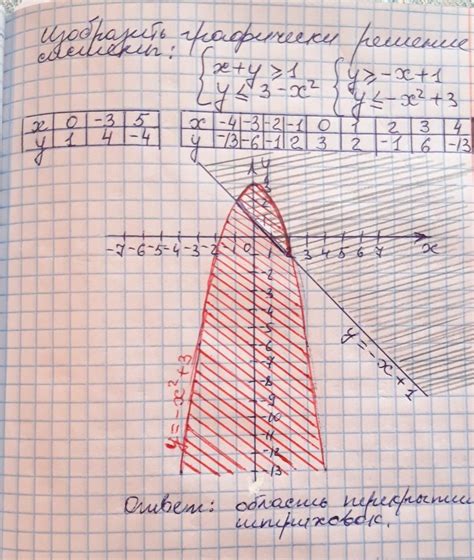 Изобразить графически решение
системы:
{ x+y ≥ 1 { y ≥ -x+1
{ y ≤ 3-x² { y ≤ -x²+3
x 0 -3 5
y 1 4 -4
x -4 -3 -2 -1 0 1 2 3 4
y -13 -6 -1 2 3 2 -1 6 -13
y
3
2
1
-7 -6 -5 -4 -3 -2 -1 0 1 2 3 4 5 6 7 x
-1
-2
-3
-4
-5
-6
-7
-8
-9
-10
-11
-12
-13
y = -x+1
y = -x²+3
Ответ: область перекрытия
штриховок.